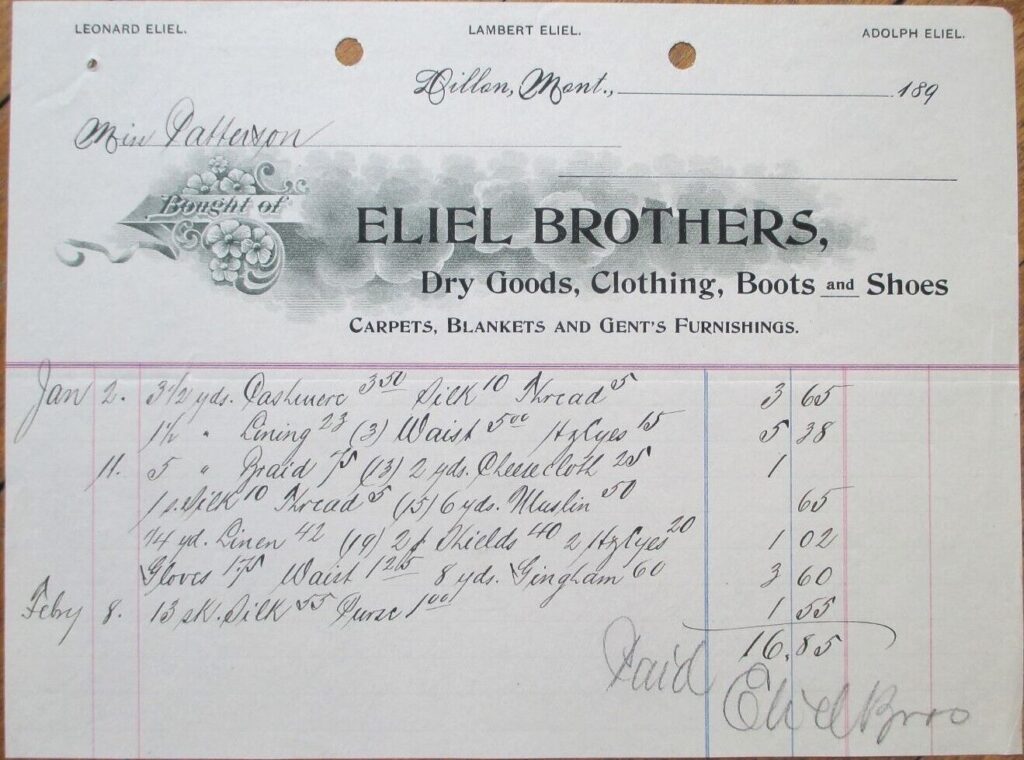 LEONARD ELIEL. LAMBERT ELIEL. ADOLPH ELIEL.
Dillon, Mont., 189
Miss Patterson
Bought of
ELIEL BROTHERS,
Dry Goods, Clothing, Boots and Shoes
CARPETS, BLANKETS AND GENT'S FURNISHINGS.
Jan 2. 3 1/2 yds. Cashmere 3 50 Silk 10 Thread 5 3 65
1 1/2 " Lining 23 (3) Waist 5 00 H & Eyes 15 5 38
11. 5 " Braid 75 (13) 2 yds. Cheesecloth 25 1
1 s. Silk 10 Thread 5 (15) 6 yds. Muslin 50 65
yd. Linen 42 (19) 2 Shields 40 2 H & Eyes 20 1 02
Gloves 1.75 Waist 1 25 8 yds. Gingham 60 3 60
Febry 8. 13 sk. Silk 55 Purse 1 00 1 55
16.85
Paid
Eliel Bros